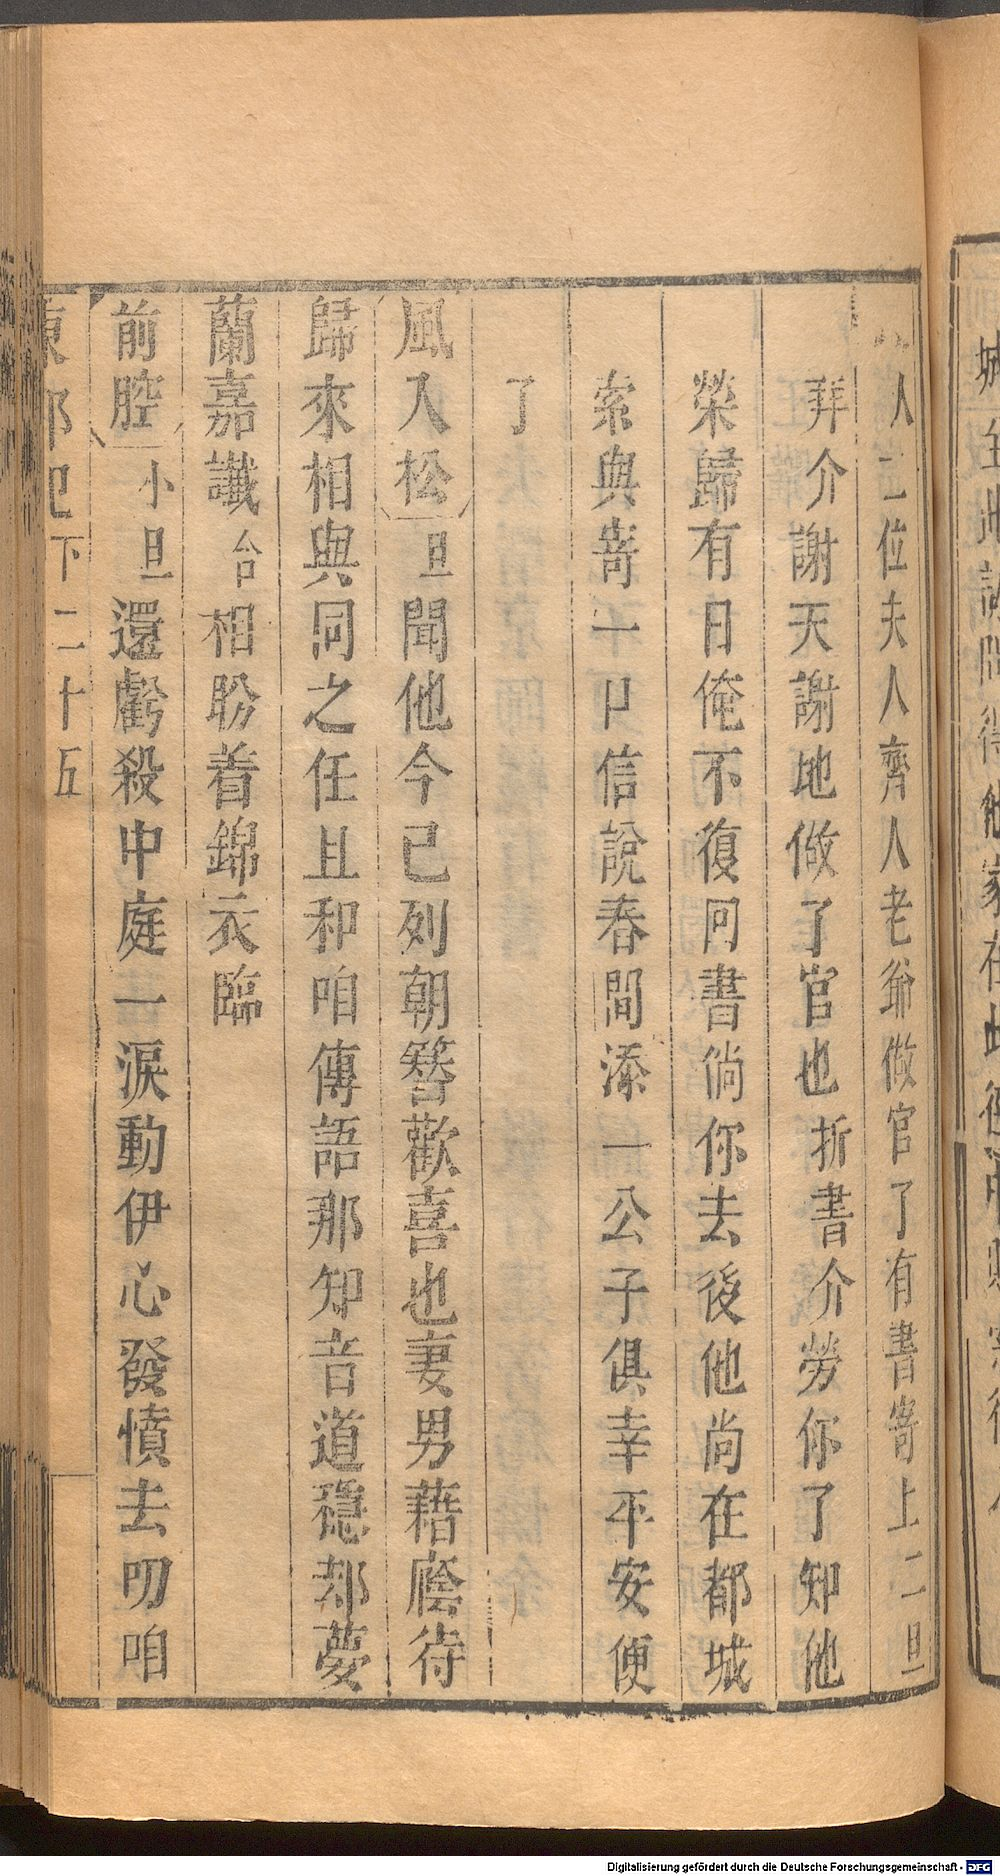 人二位夫人齊人老爺做官了有書寄上二旦
拜介謝天謝地做了官也折書介勞你了知他
榮歸有日俺不復囘書倘你去後他尚在都城
索與寄一口信說春間添一公子俱幸平安便
了
風入松旦聞他今已列朝簪歡喜也妻男藉廕待
歸來相與同之任且和咱傳語那知音道穩却夢
蘭嘉讖合相盼着錦衣臨
前腔小旦還虧殺中庭一淚動伊心發憤去叨咱
東郭記下二十五
Digitalisierung gefördert durch die Deutsche Forschungsgemeinschaft - DFG